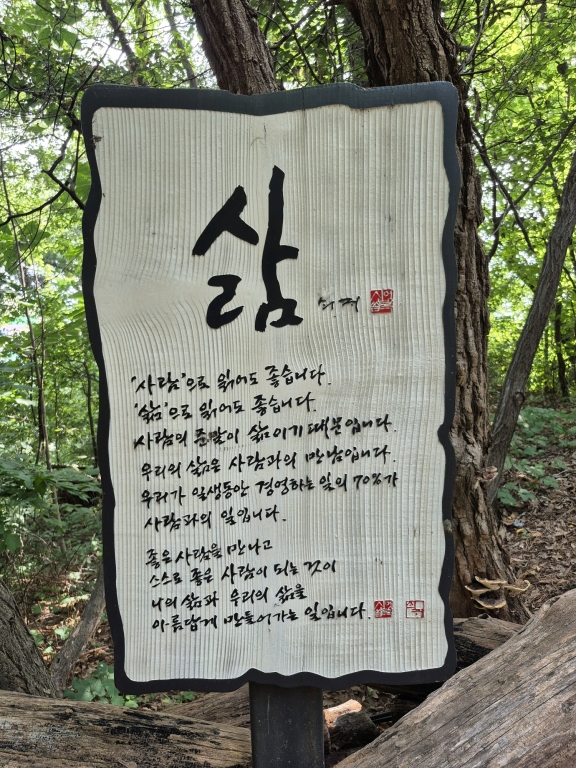 삶
"사람"으로 읽어도 좋습니다.
"삶"으로 읽어도 좋습니다.
사람의 준말이 삶이기 때문입니다.
우리의 삶은 사람과의 만남입니다.
우리가 일생동안 경영하는 일의 70%가
사람과의 일입니다.
좋은 사람을 만나고
스스로 좋은 사람이 되는 것이
나의 삶과 우리의 삶을
아름답게 만들어가는 일입니다.